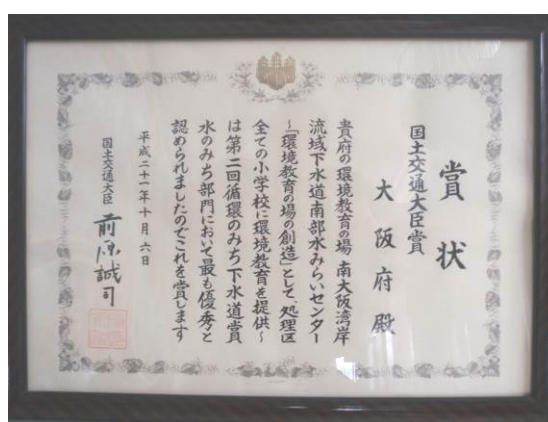 賞状
国土交通大臣賞
大阪府殿
貴府の環境教育の場 南大阪湾岸
流域下水道南部水みらいセンター
～「環境教育の場の創造」として、処理区
全ての小学校に環境教育を提供～
は第二回循環のみち下水道賞
水のみち部門において最も優秀と
認められましたのでこれを賞します
平成二十一年十月六日
国土交通大臣 前原誠司